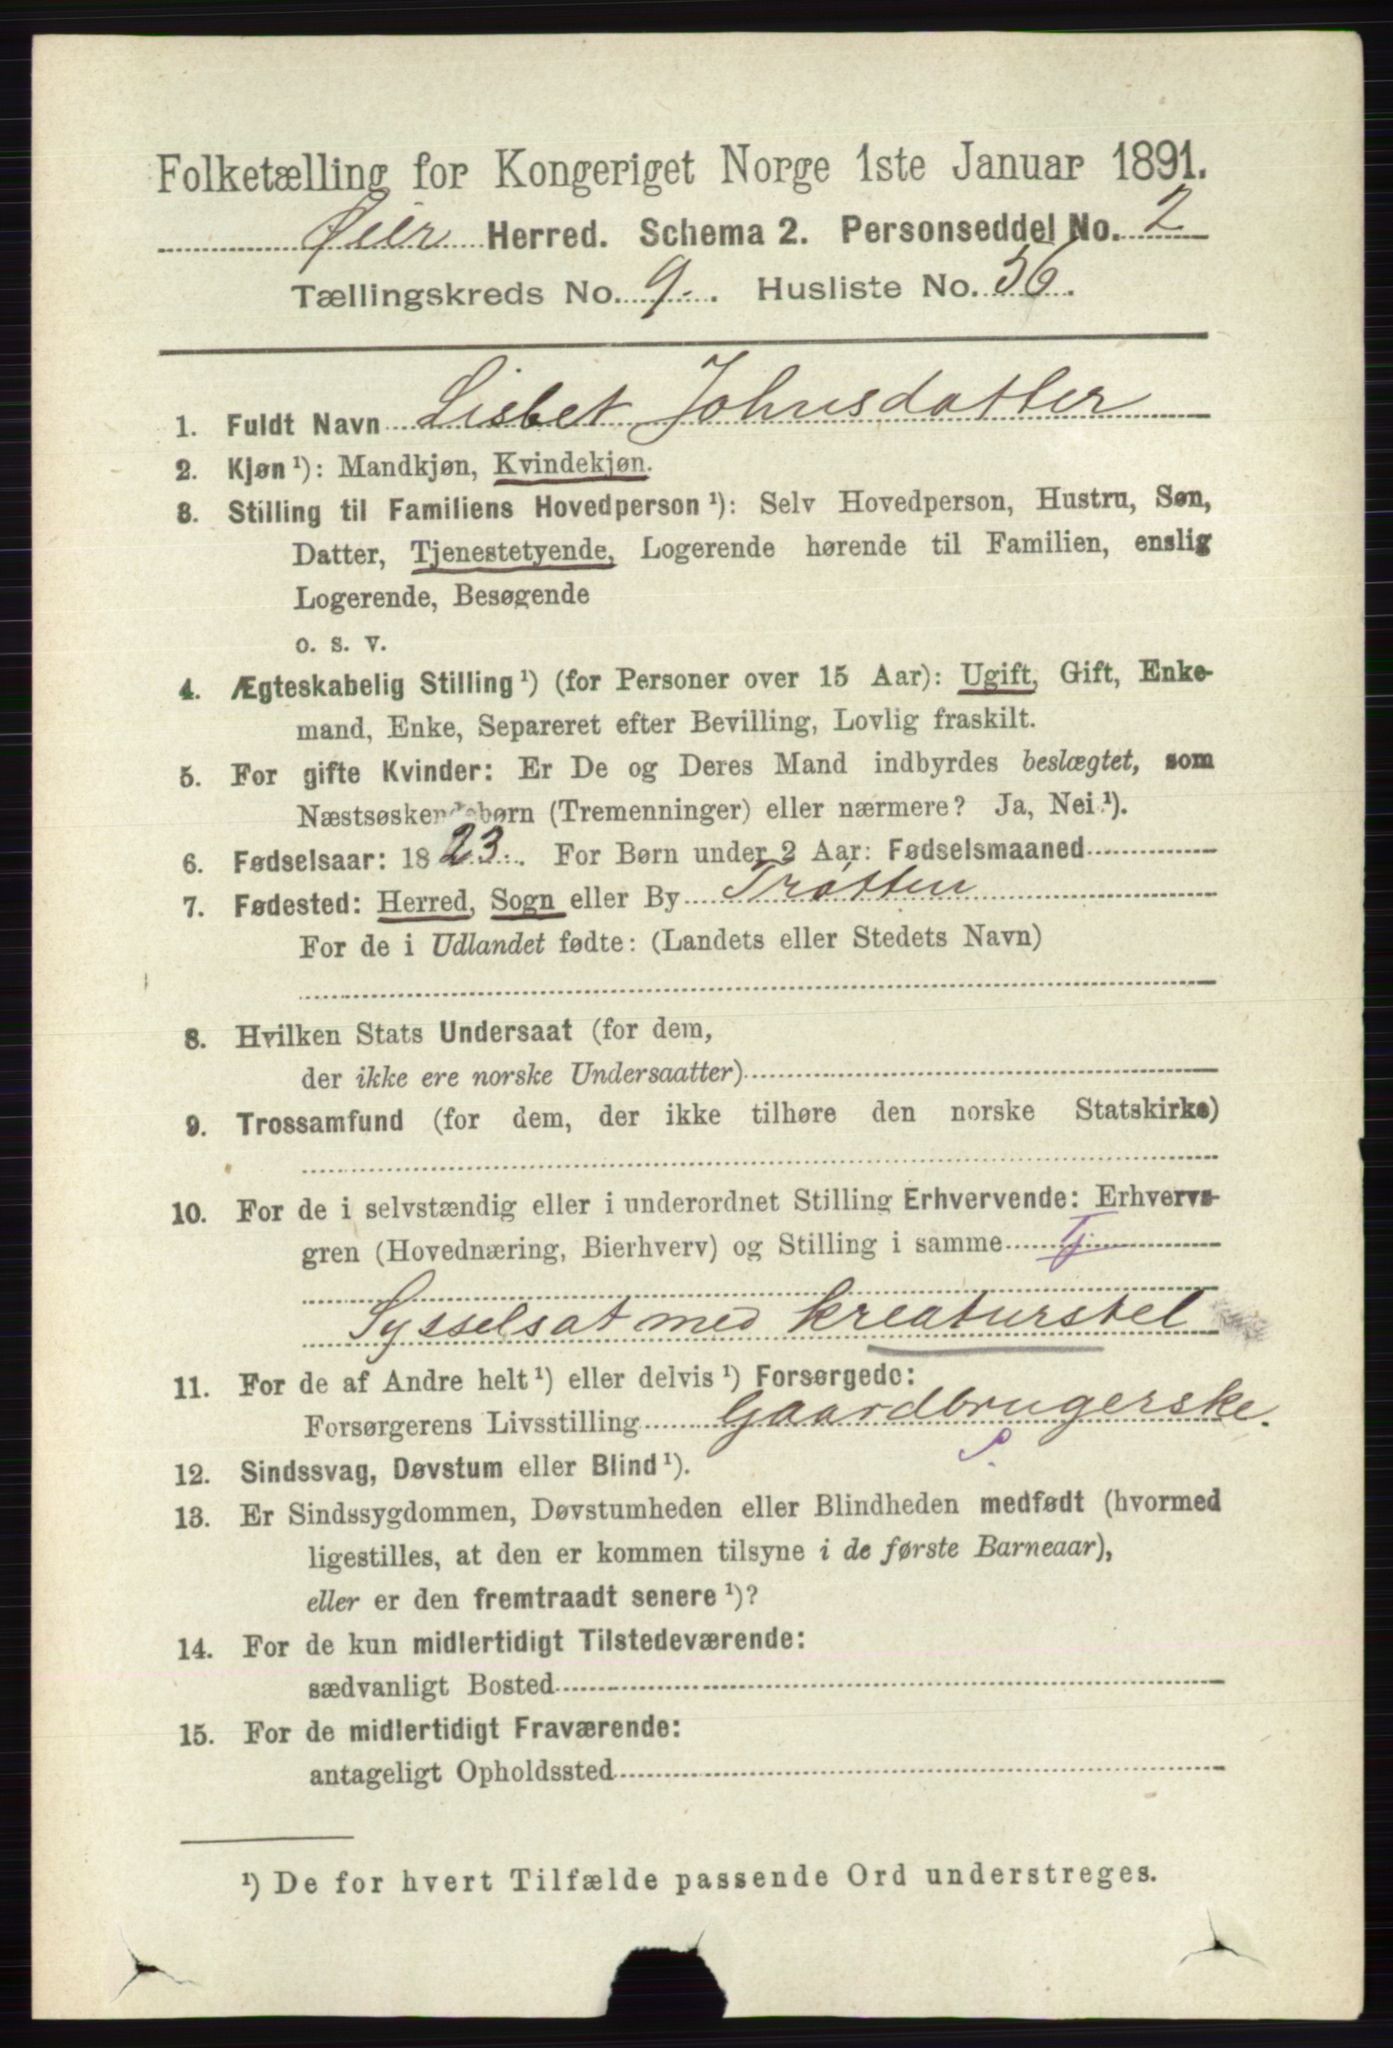 Folketælling for Kongeriget Norge 1ste Januar 1891.
Øier Herred. Schema 2. Personseddel No. 2
Tællingskreds No. 9. Husliste No. 56.
1. Fuldt Navn Lisbet Johnsdatter
2. Kjøn ¹): Mandkjøn, Kvindekjøn.
3. Stilling til Familiens Hovedperson ¹): Selv Hovedperson, Hustru, Søn,
Datter, Tjenestetyende, Logerende hørende til Familien, enslig
Logerende, Besøgende
o. s. v.
4. Ægteskabelig Stilling ¹) (for Personer over 15 Aar): Ugift, Gift, Enke-
mand, Enke, Separeret efter Bevilling, Lovlig fraskilt.
5. For gifte Kvinder: Er De og Deres Mand indbyrdes beslægtet, som
Næstsøskendebørn (Tremenninger) eller nærmere? Ja, Nei ¹).
6. Fødselsaar: 1823. For Børn under 2 Aar: Fødselsmaaned
7. Fødested: Herred, Sogn eller By Trøtten
For de i Udlandet fødte: (Landets eller Stedets Navn)
8. Hvilken Stats Undersaat (for dem,
der ikke ere norske Undersaatter)
9. Trossamfund (for dem, der ikke tilhøre den norske Statskirke)
10. For de i selvstændig eller i underordnet Stilling Erhvervende: Erhvervs-
gren (Hovednæring, Bierhverv) og Stilling i samme Tj
Sysselsat med kreaturstel
11. For de af Andre helt ¹) eller delvis ¹) Forsørgede:
Forsørgerens Livsstilling Gaardbrugerske.
12. Sindssvag, Døvstum eller Blind ¹).
13. Er Sindssygdommen, Døvstumheden eller Blindheden medfødt (hvormed
ligestilles, at den er kommen tilsyne i de første Barneaar),
eller er den fremtraadt senere ¹)?
14. For de kun midlertidigt Tilstedeværende:
sædvanligt Bosted
15. For de midlertidigt Fraværende:
antageligt Opholdssted
¹) De for hvert Tilfælde passende Ord understreges.